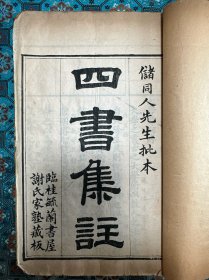 儲同人先生批本
四書集註
臨桂毓蘭書屋
謝氏家塾藏板